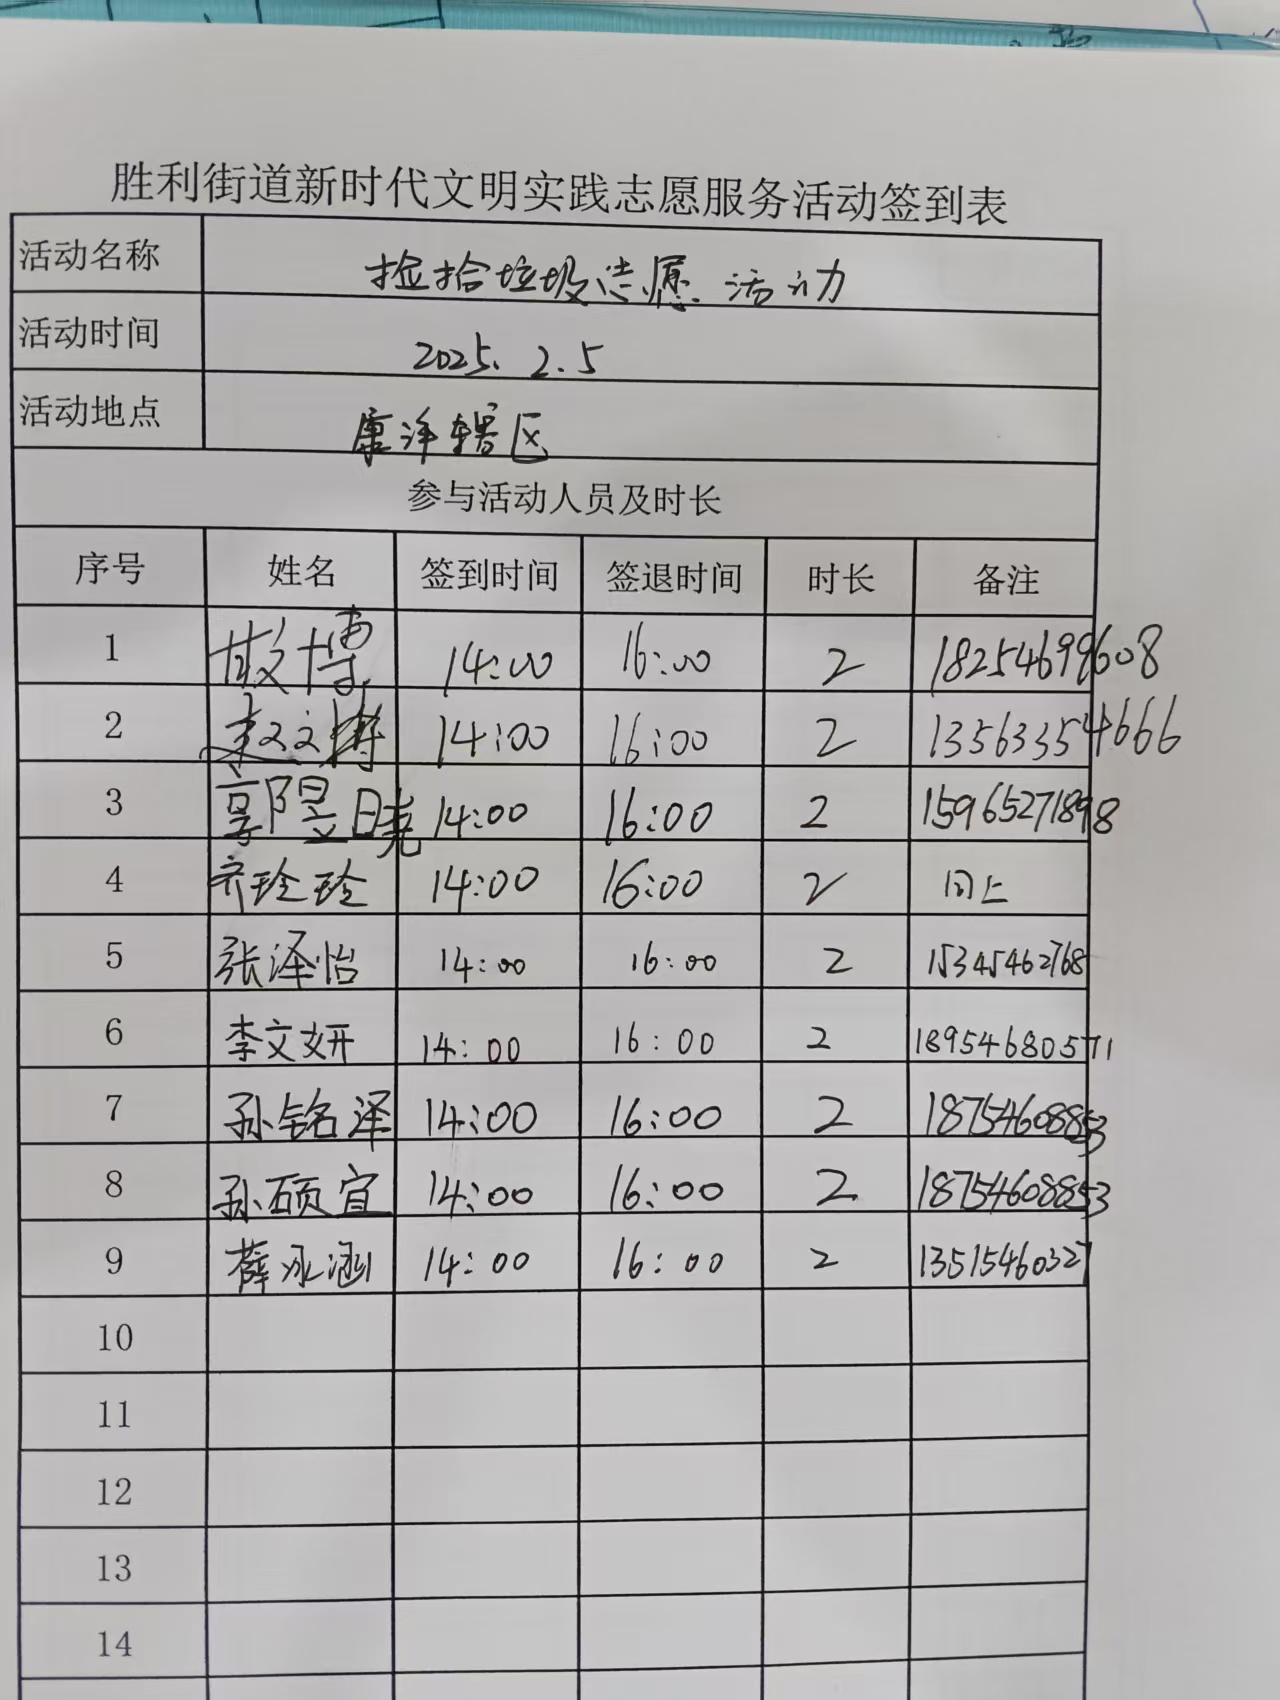 胜利街道新时代文明实践志愿服务活动签到表
活动名称 捡拾垃圾志愿活动
活动时间 2025.2.5
活动地点 康洋辖区
参与活动人员及时长
序号 姓名 签到时间 签退时间 时长 备注
1 博 14:00 16:00 2 18254699608
2 文博 14:00 16:00 2 13563354666
3 郭昱晓 14:00 16:00 2 15965271898
4 齐玲玲 14:00 16:00 2 同上
5 张泽怡 14:00 16:00 2 15345462768
6 李文妍 14:00 16:00 2 18954680571
7 孙铭泽 14:00 16:00 2 18754608853
8 孙硕宜 14:00 16:00 2 18754608853
9 薛冰涵 14:00 16:00 2 13515460327
10
11
12
13
14